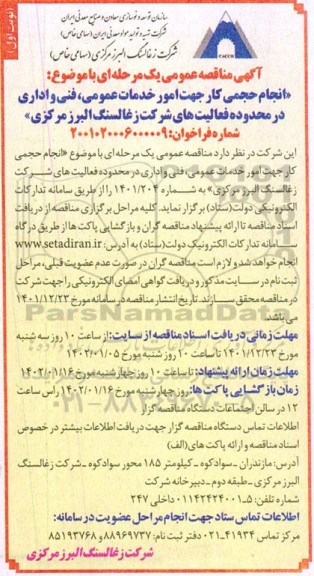 نوبت اول
سازمان توسعه و نوسازی معادن و صنایع معدنی ایران
شرکت تهیه و تولید مواد معدنی ایران (سهامی خاص)
شرکت زغالسنگ البرز مرکزی (سهامی خاص)
آگهی مناقصه عمومی یک مرحله ای با موضوع:
«انجام حجمی کار جهت امور خدمات عمومی، فنی و اداری
در محدوده فعالیت های شرکت زغالسنگ البرز مرکزی»
شماره فراخوان: ۲۰۰۱۰۲۰۰۰۶۰۰۰۰۰۹
این شرکت در نظر دارد مناقصه عمومی یک مرحله ای با موضوع «انجام حجمی
کار جهت امور خدمات عمومی، فنی و اداری در محدوده فعالیت های شرکت
زغالسنگ البرز مرکزی» به شماره ۱۴۰۱/۲۰۴ را از طریق سامانه تدارکات
الکترونیکی دولت (ستاد) برگزار نماید. کلیه مراحل برگزاری مناقصه از دریافت
اسناد مناقصه تا ارائه پیشنهاد مناقصه گران و بازگشایی پاکت ها از طریق درگاه
سامانه تدارکات الکترونیک دولت (ستاد) به آدرس: www.setadiran.ir
انجام خواهد شد و لازم است مناقصه گران در صورت عدم عضویت قبلی، مراحل
ثبت نام در سایت مذکور و دریافت گواهی امضای الکترونیکی را جهت شرکت
در مناقصه محقق سازند. تاریخ انتشار مناقصه در سامانه مورخ ۱۴۰۱/۱۲/۲۳
می باشد.
مهلت زمانی دریافت اسناد مناقصه از سایت: از ساعت ۱۰ روز سه شنبه
مورخ ۱۴۰۱/۱۲/۲۳ تا ساعت ۱۰ روز شنبه مورخ ۱۴۰۲/۰۱/۰۵
مهلت زمان ارائه پیشنهاد: تا ساعت ۱۰ روز چهارشنبه مورخ ۱۴۰۲/۰۱/۱۶
زمان بازگشایی پاکت ها: روز چهارشنبه مورخ ۱۴۰۲/۰۱/۱۶ راس ساعت
۱۲ در سالن اجتماعات دستگاه مناقصه گزار
اطلاعات تماس دستگاه مناقصه گزار جهت دریافت اطلاعات بیشتر در خصوص
اسناد مناقصه و ارائه پاکت های (الف)
آدرس: مازندران - سوادکوه - کیلومتر ۱۸۵ محور سوادکوه - شرکت زغالسنگ
البرز مرکزی - طبقه دوم - دبیرخانه شرکت
شماره تلفن: ۵-۰۱۱۴۲۴۲۴۰۰۱ داخلی ۲۴۷
اطلاعات تماس ستاد جهت انجام مراحل عضویت در سامانه:
مرکز تماس ۴۱۹۳۴-۰۲۱ دفتر ثبت نام: ۸۸۹۶۹۷۳۷ و ۸۵۱۹۳۷۶۸
شرکت زغالسنگ البرز مرکزی